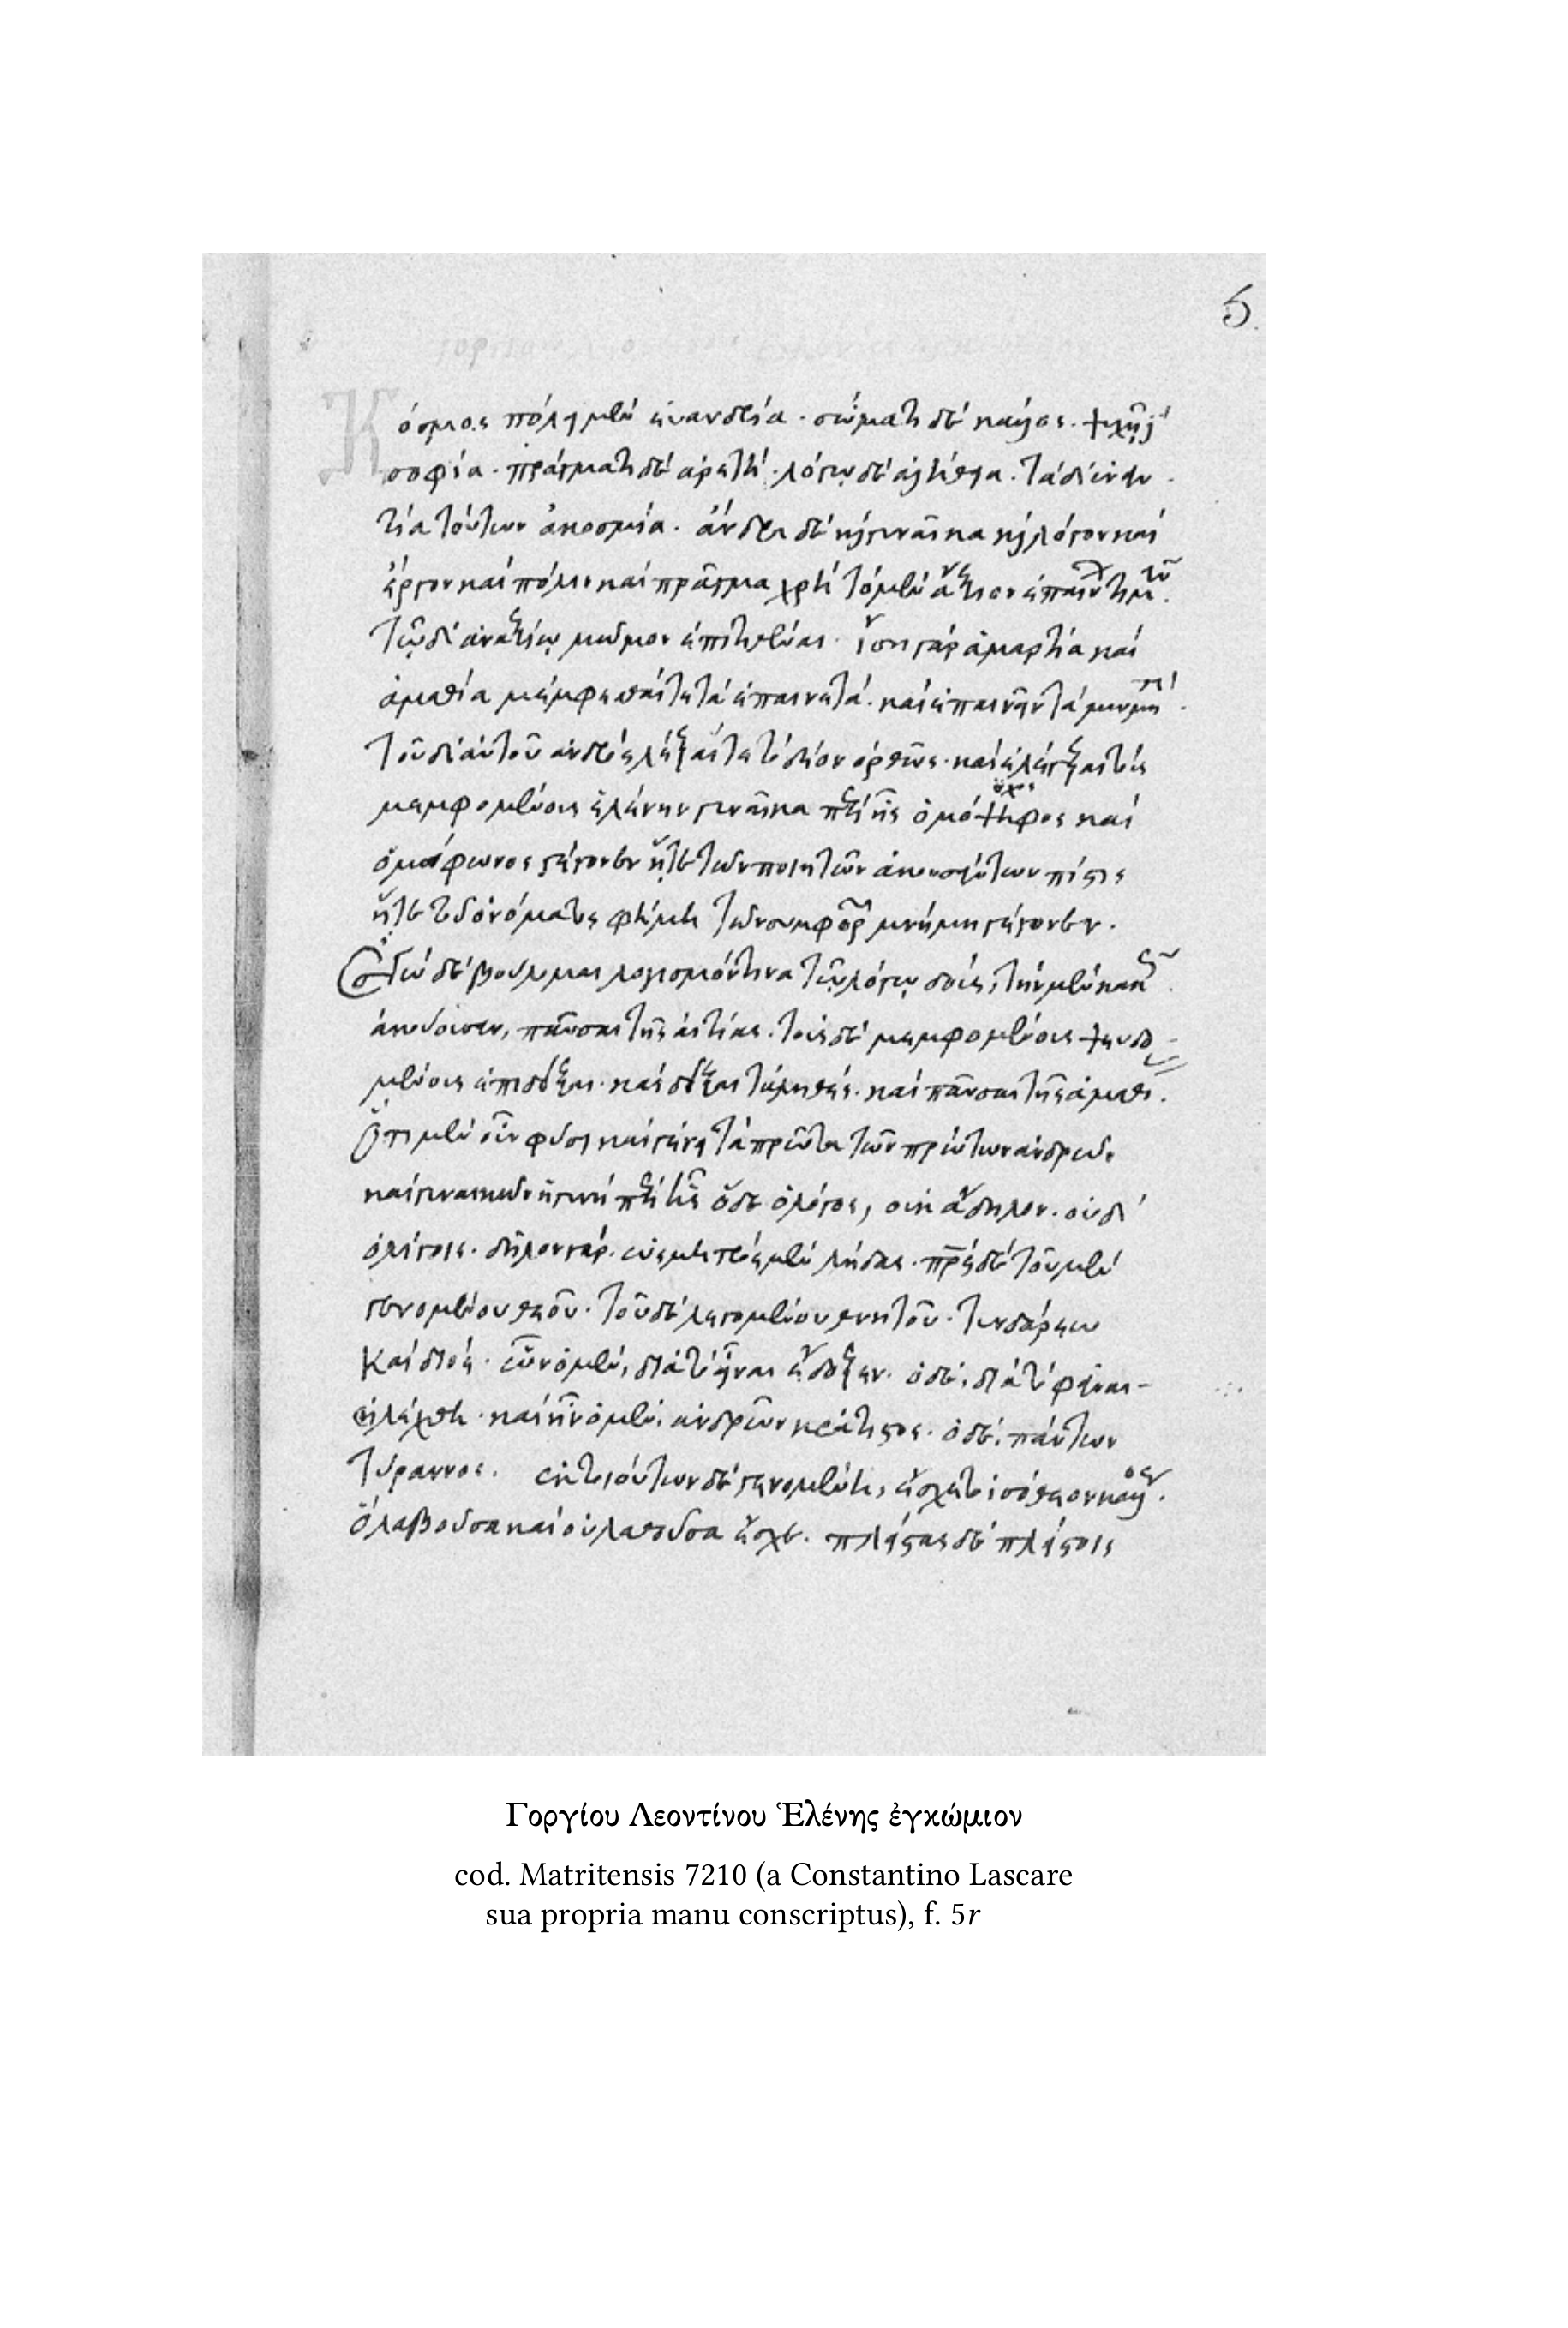 5
Κόσμος πόλει μὲν εὐανδρία. σώματι δὲ κάλλος. ψυχῇ δὲ
σοφία. πράγματι δὲ ἀρετή. λόγῳ δὲ ἀλήθεια. τὰ δὲ ἐναν
τία τούτων ἀκοσμία. ἄνδρα δὲ καὶ γυναῖκα καὶ λόγον καὶ
ἔργον καὶ πόλιν καὶ πρᾶγμα χρὴ τὸ μὲν ἄξιον ἐπαίνου τιμᾶν.
τῷ δὲ ἀναξίῳ μῶμον ἐπιτιθέναι. ἴση γὰρ ἁμαρτία καὶ
ἀμαθία μέμφεσθαί τε τὰ ἐπαινετά. καὶ ἐπαινεῖν τὰ μωμητά.
τοῦ δ' αὐτοῦ ἀνδρὸς λέξαι τε τὸ δέον ὀρθῶς. καὶ ἐλέγξαι τοὺς
μεμφομένους ἑλένην γυναῖκα περὶ ἧς ὁμόψηφος καὶ
ὁμόφωνος γέγονεν ἥτε τῶν ποιητῶν ἀκουσάντων πίστις
ἥτε τοῦ ὀνόματος φήμη τῶν συμφορῶν μνήμη γέγονεν.
Ἐγὼ δὲ βούλομαι λογισμόν τινα τῷ λόγῳ δούς, τὴν μὲν κακῶς
ἀκούουσαν, παῦσαι τῆς αἰτίας. τοὺς δὲ μεμφομένους ψευδο
μένους ἐπιδεῖξαι. καὶ δεῖξαι τἀληθές. καὶ παῦσαι τῆς ἀμαθίας.
Ὅτι μὲν οὖν φύσει καὶ γένει τὰ πρῶτα τῶν πρώτων ἀνδρῶν
καὶ γυναικῶν ἡ γυνὴ περὶ ἧς ὅδε ὁ λόγος, οὐκ ἄδηλον. οὐδὲ
ὀλίγοις. δῆλον γὰρ. ὡς μητρὸς μὲν λήδας. πατρὸς δὲ τοῦ μὲν
γενομένου θεοῦ. τοῦ δὲ λεγομένου θνητοῦ. τυνδάρεω
καὶ διός. ὧν ὁ μὲν, διὰ τὸ εἶναι ἔδοξεν. ὁ δὲ, διὰ τὸ φάναι
ἠλέγχθη. καὶ ἦν ὁ μὲν, ἀνδρῶν κράτιστος. ὁ δὲ, πάντων
τύραννος. ἐκ τοιούτων δὲ γενομένη, ἔσχε τὸ ἰσόθεον κάλλος.
ὃ λαβοῦσα καὶ οὐ λαθοῦσα ἔσχε. πλείστας δὲ πλείστοις
Γοργίου Λεοντίνου Ἑλένης ἐγκώμιον
cod. Matritensis 7210 (a Constantino Lascare
sua propria manu conscriptus), f. 5r